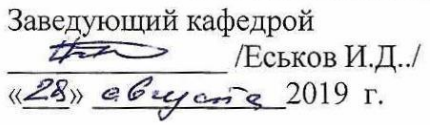 Заведующий кафедрой
/Еськов И.Д../
«28» августа 2019 г.